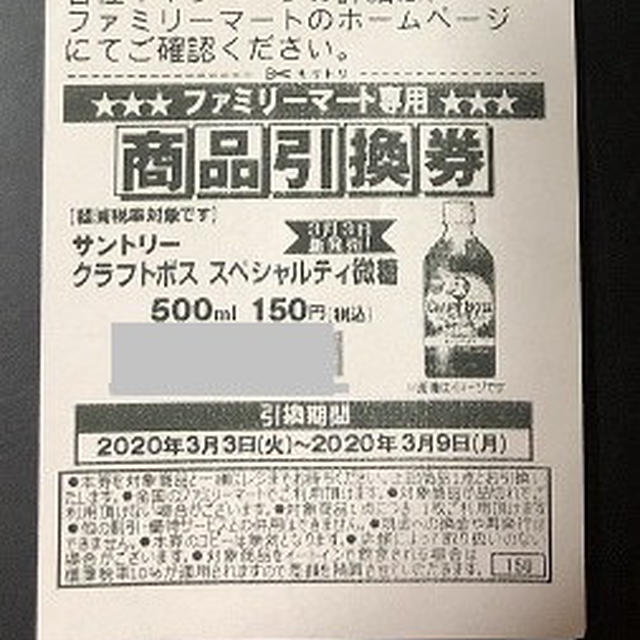 ファミリーマートのホームページ
にてご確認ください。
キリトリ
★★★ ファミリーマート専用 ★★★
商品引換券
[軽減税率対象です]
3月3日
新発売!
サントリー
クラフトボス スペシャルティ微糖
500ml 150円(税込)
※画像はイメージです
引換期間
2020年3月3日(火)~2020年3月9日(月)
●本券を対象商品と一緒にレジまでお持ちください。上記商品1点とお引換い
たします。●全国のファミリーマートでご利用頂けます。●対象商品が品切れでご
利用頂けない場合がございます。●対象商品1点につき1枚ご利用頂けます
●他の割引・優待サービスとの併用はできません。●現金への換金や再発行は
できません。●本券のコピーは無効となります。●店舗によって取り扱いのない
場合がございます。●対象商品をイートインで飲食される場合は
標準税率10%が適用されますので差額を精算させていただきます。
159